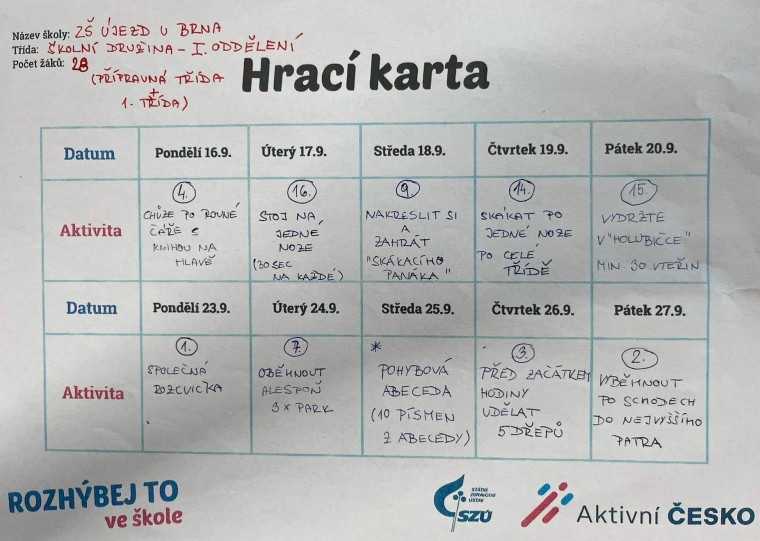 Název školy: ZŠ ÚJEZD U BRNA
Třída: ŠKOLNÍ DRUŽINA - I. ODDĚLENÍ
Počet žáků: 28
(PŘÍPRAVNÁ TŘÍDA
+
1. TŘÍDA)
Hrací karta
Datum Pondělí 16.9. Úterý 17.9. Středa 18.9. Čtvrtek 19.9. Pátek 20.9.
Aktivita
4.
CHŮZE PO ROVNÉ
ČÁŘE S
KNIHOU NA
HLAVĚ
16.
STOJ NA
JEDNÉ
NOZE
(30 SEC
NA KAŽDÉ)
9.
NAKRESLIT SI
A
ZAHRÁT
"SKÁKACÍHO
PANÁKA"
14.
SKÁKAT PO
JEDNÉ NOZE
PO CELÉ
TŘÍDĚ
15.
VYDRŽTE
V "HOLUBIČCE"
MIN. 30 VTEŘIN
Datum Pondělí 23.9. Úterý 24.9. Středa 25.9. Čtvrtek 26.9. Pátek 27.9.
Aktivita
1.
SPOLEČNÁ
ROZCVIČKA
7.
OBĚHNOUT
ALESPOŇ
3x PARK
*
POHYBOVÁ
ABECEDA
(10 PÍSMEN
Z ABECEDY)
3.
PŘED ZAČÁTKEM
HODINY
UDĚLAT
5 DŘEPŮ
2.
VYBĚHNOUT
PO SCHODECH
DO NEJVYŠŠÍHO
PATRA
ROZHÝBEJ TO
ve škole
STÁTNÍ
ZDRAVOTNÍ
ÚSTAV
SZÚ
Aktivní ČESKO